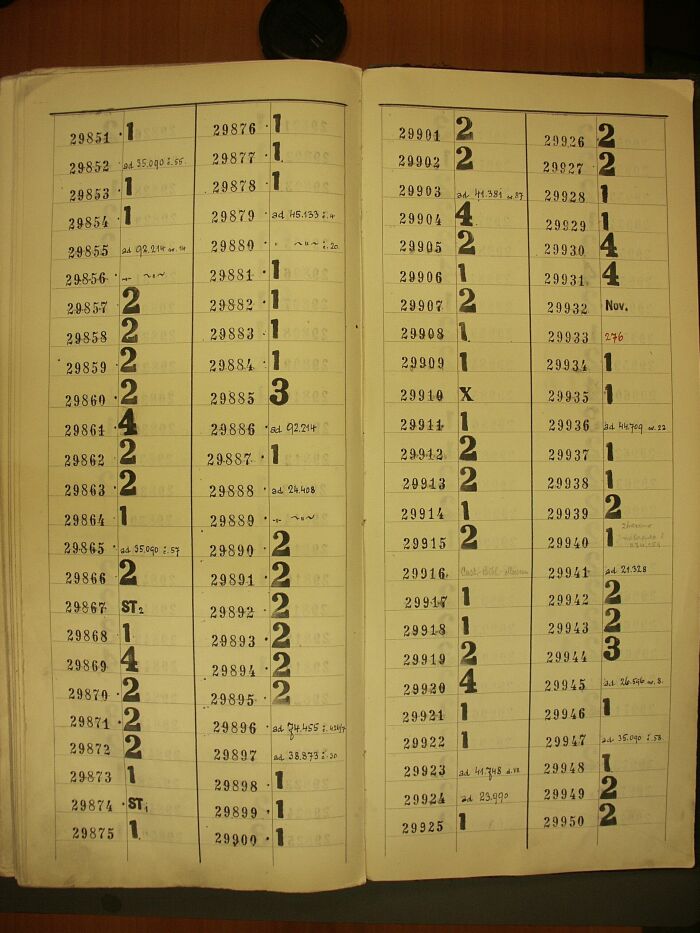 29851 · 1
29852 ad 35.090 i. 55.
29853 · 1
29854 · 1
29855 ad 92.214 w. 14
29856 · -"- ~"~
29857 · 2
29858 2
29859 · 2
29860 · 2
29861 · 4
29862 · 2
29863 · 2
29864 · 1
29865 · ad 35.090 i. 57
29866 · 2
29867 ST2
29868 · 1
29869 4
29870 · 2
29871 · 2
29872 2
29873 1
29874 · ST1
29875 1
29876 · 1
29877 · 1
29878 · 1
29879 · ad 45.133 i. 4
29880 · " ~"~ i. 20.
29881 · 1
29882 · 1
29883 · 1
29884 · 1
29885 3
29886 · ad 92.214
29887 · 1
29888 · ad 24.408
29889 · -"- ~"~
29890 · 2
29891 · 2
29892 · 2
29893 · 2
29894 · 2
29895 · 2
29896 · ad 74.455 i.
29897 · ad 38.873 i. 30
29898 · 1
29899 · 1
29900 · 1
29901 2
29902 2
29903 ad 41.381 w. 87
29904 4
29905 2
29906 1
29907 2
29908 1
29909 1
29910 X
29911 1
29912 2
29913 2
29914 1
29915 2
29916
29917 1
29918 1
29919 2
29920 4
29921 1
29922 1
29923 ad 41.748
29924 ad 23.990
29925 1
29926 2
29927 2
29928 1
29929 1
29930 4
29931 4
29932 Nov.
29933 276
29934 1
29935 1
29936 ad 44.709 w. 22
29937 1
29938 1
29939 2
29940 1
29941 ad 21.328
29942 2
29943 2
29944 3
29945 ad 26.596 w. 8.
29946 1
29947 ad 35.090 i. 58.
29948 1
29949 2
29950 2